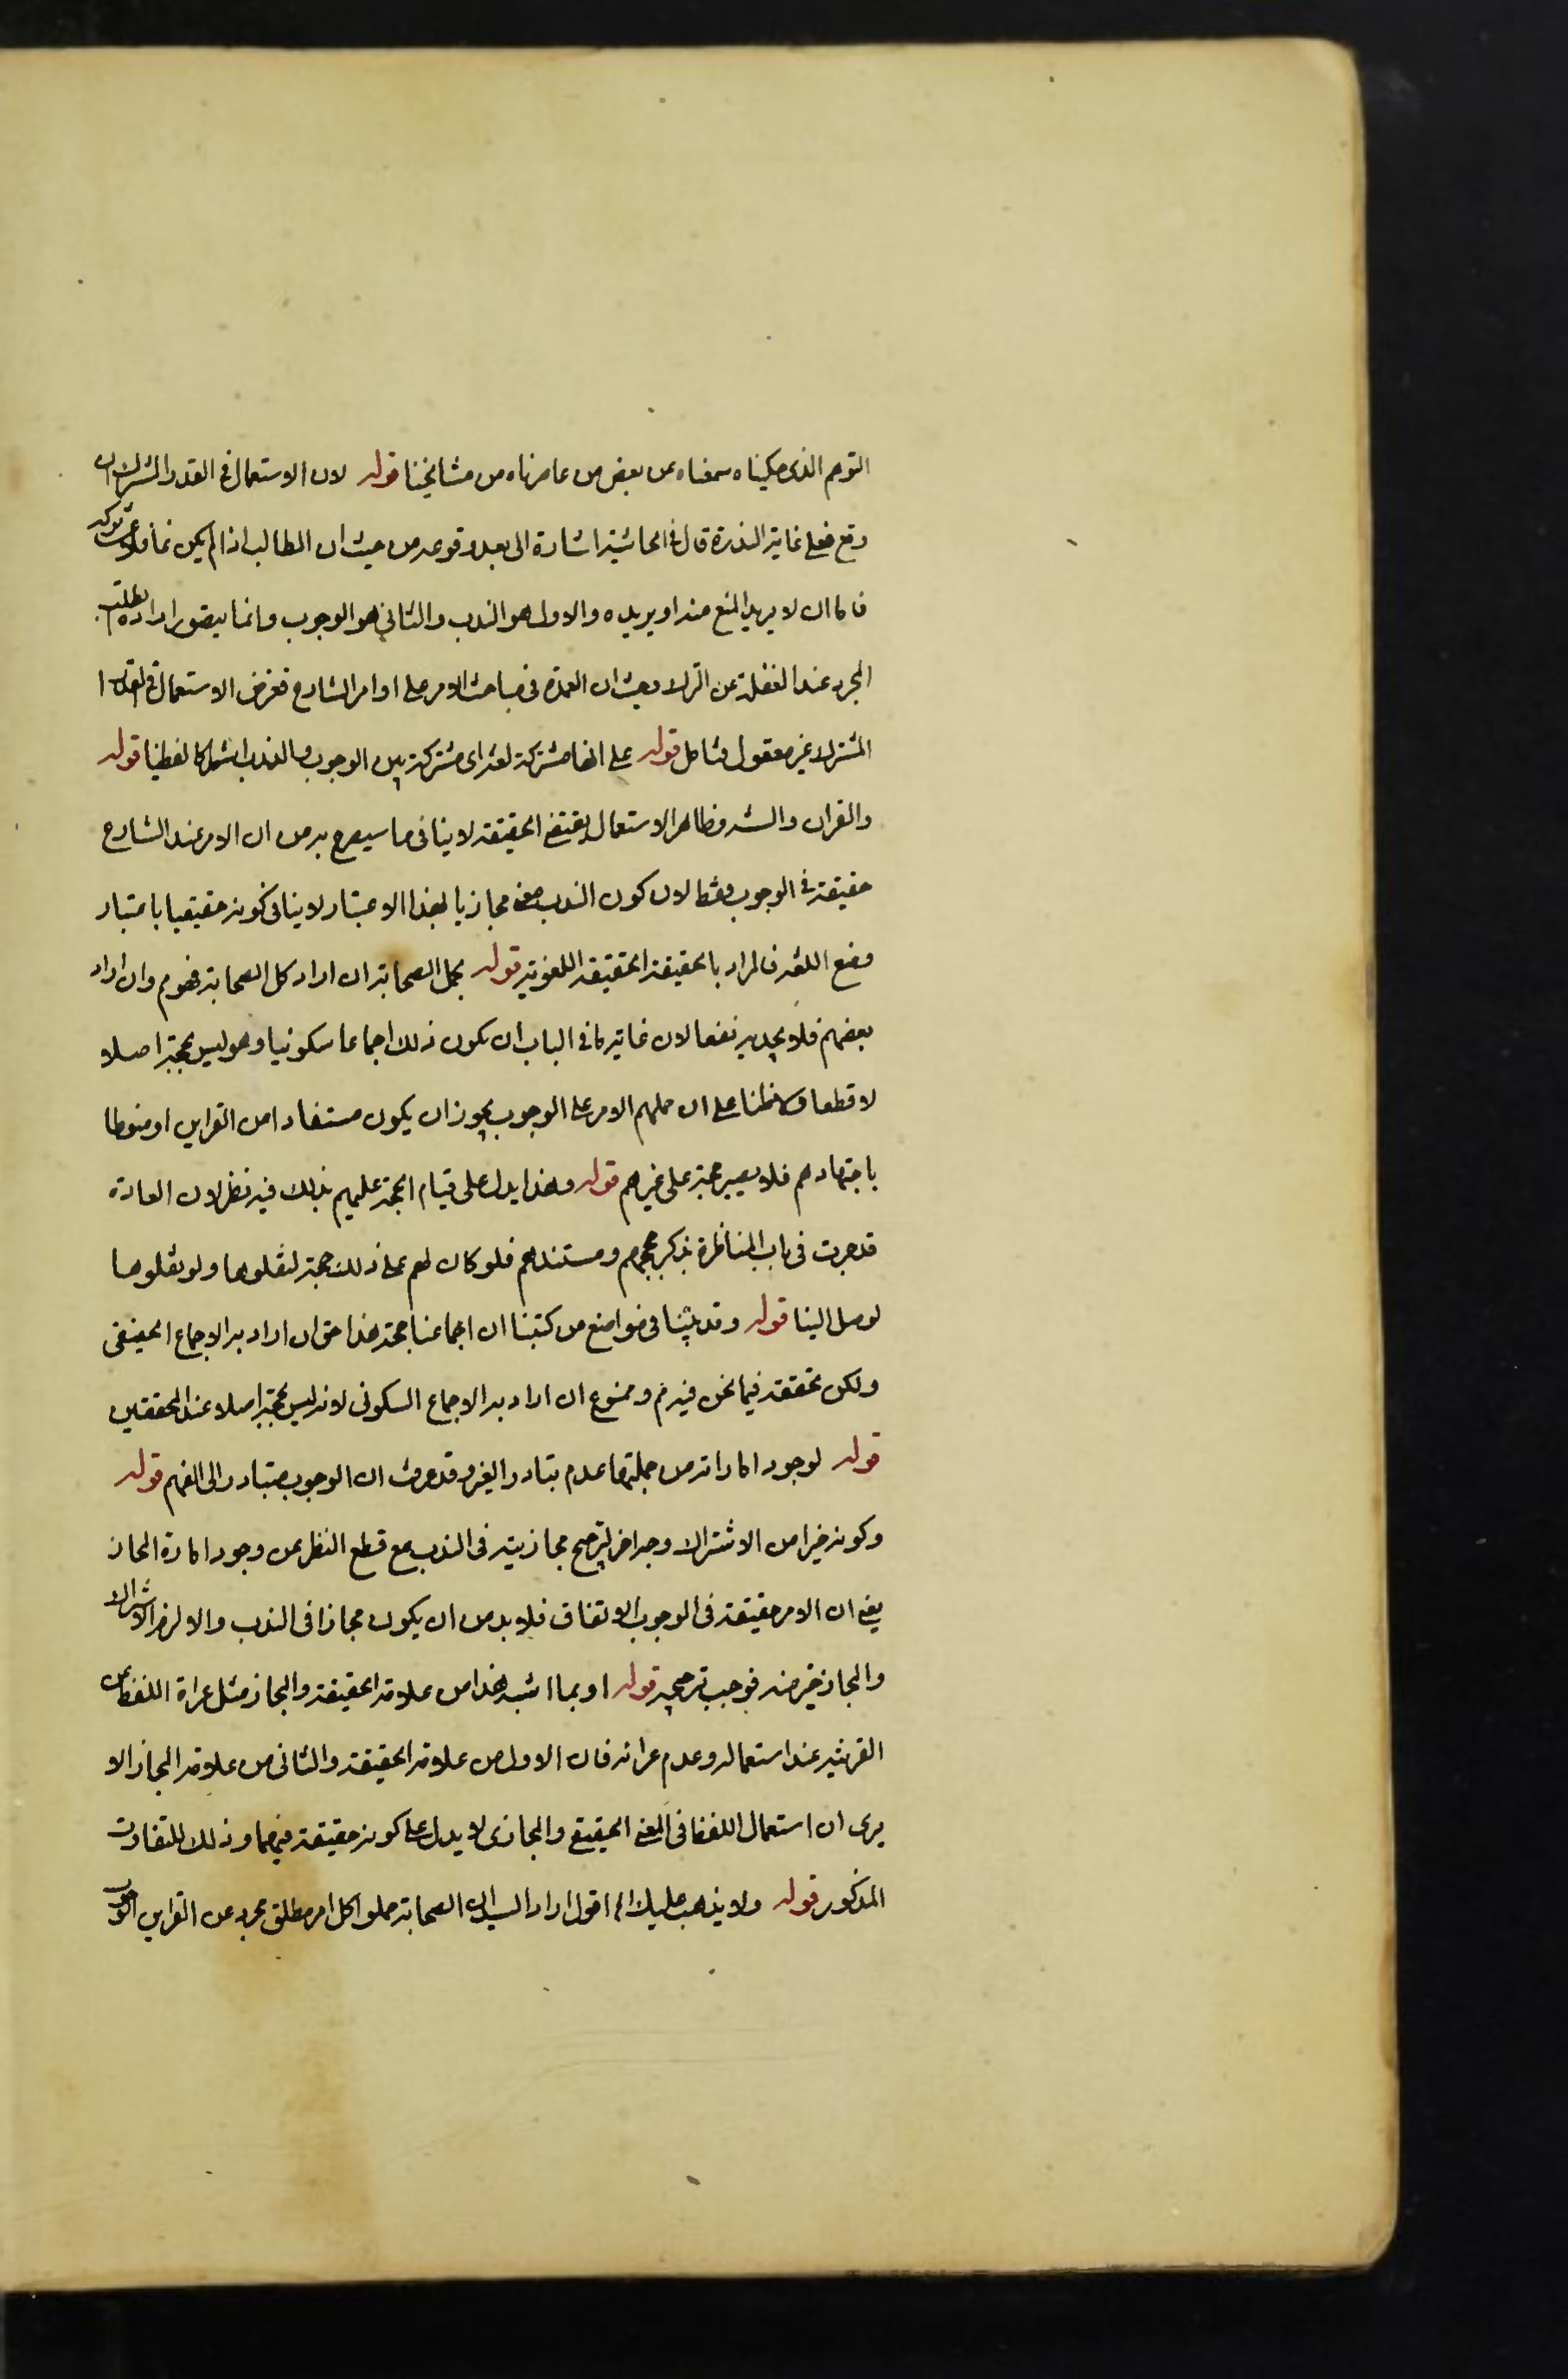 التوهم الذى حكيناه سمعناه من بعض من عاصرناه من مشايخنا قوله لان الاستعمال فى القدر المشترك ان
وقع فعلى غاية الندرة قال فى الحاشية اشارة الى بعد وقوعه من حيث ان الطالب اذا لم يكن غافلا عن تركه
فاما ان لا يريد المنع منه او يريده والاول هو الندب والثانى هو الوجوب وانما يتصور ارادة الطلب
المجرد عند الغفلة عن الترك وحيث ان العمدة فى مباحث الامر على اوامر الشارع فغرض الاستعمال فى القدر
المشترك غير معقول فتامل قوله على انها مشتركة لغة اى مشتركة بين الوجوب والندب اشتراكا لفظيا قوله
والقران والسنة وظاهر الاستعمال يقتضى الحقيقة لا ينافى ما سيصرح به من ان الامر عند الشارع
حقيقة فى الوجوب فقط لان كون الندب معنى مجازيا بهذا الاعتبار لا ينافى كونه حقيقيا باعتبار
وضع اللغة فالمراد بالحقيقة الحقيقة اللغوية قوله بحمل الصحابة ان اراد كل الصحابة فهو م وان اراد
بعضهم فلا يجديه نفعا لان غاية ما فى الباب ان يكون ذلك اجماعا سكوتيا وهو ليس بحجة اصلا
لا قطعا ولا ظنا على ان حملهم الامر على الوجوب يجوز ان يكون مستفادا من القراين او منوطا
باجتهادهم فلا يصير حجة على غيرهم قوله وهذا يدل على قيام الحجة عليهم بذلك فيه نظر لان العادة
قد جرت فى باب المناظرة بذكر حججهم ومستندهم فلو كان لهم على ذلك حجة لنقلوها ولو نقلوها
لوصل الينا قوله وقد بينا فى مواضع من كتبنا ان اجماعنا حجة هذا حق ان اراد به الاجماع الحقيقى
ولكن تحققه فيما نحن فيه م وممنوع ان اراد به الاجماع السكوتى لانه ليس بحجة اصلا عند المحققين
قوله لوجود اماراته من جملتها عدم تبادر الغير وقد عرفت ان الوجوب متبادر الى الفهم قوله
وكونه خيرا من الاشتراك وجه اخر لترجيح مجازيته فى الندب مع قطع النظر عن وجود امارة المجاز
يعنى ان الامر حقيقة فى الوجوب بالاتفاق فلا بد من ان يكون مجازا فى الندب والا لزم الاشتراك
والمجاز خير منه فوجب ترجيحه قوله او بما اشبه هذا من علامة الحقيقة والمجاز مثل عراة اللفظ عن
القرينة عند استعماله وعدم عرائه فان الاول من علامة الحقيقة والثانى من علامة المجاز الا
يرى ان استعمال اللفظ فى المعنى الحقيقى والمجازى لا يدل على كونه حقيقة فيهما وذلك للتفاوت
المذكور قوله ولا يذهب عليك الخ اقول اراد السيد ان الصحابة حملوا كل امر مطلق مجرد عن القراين